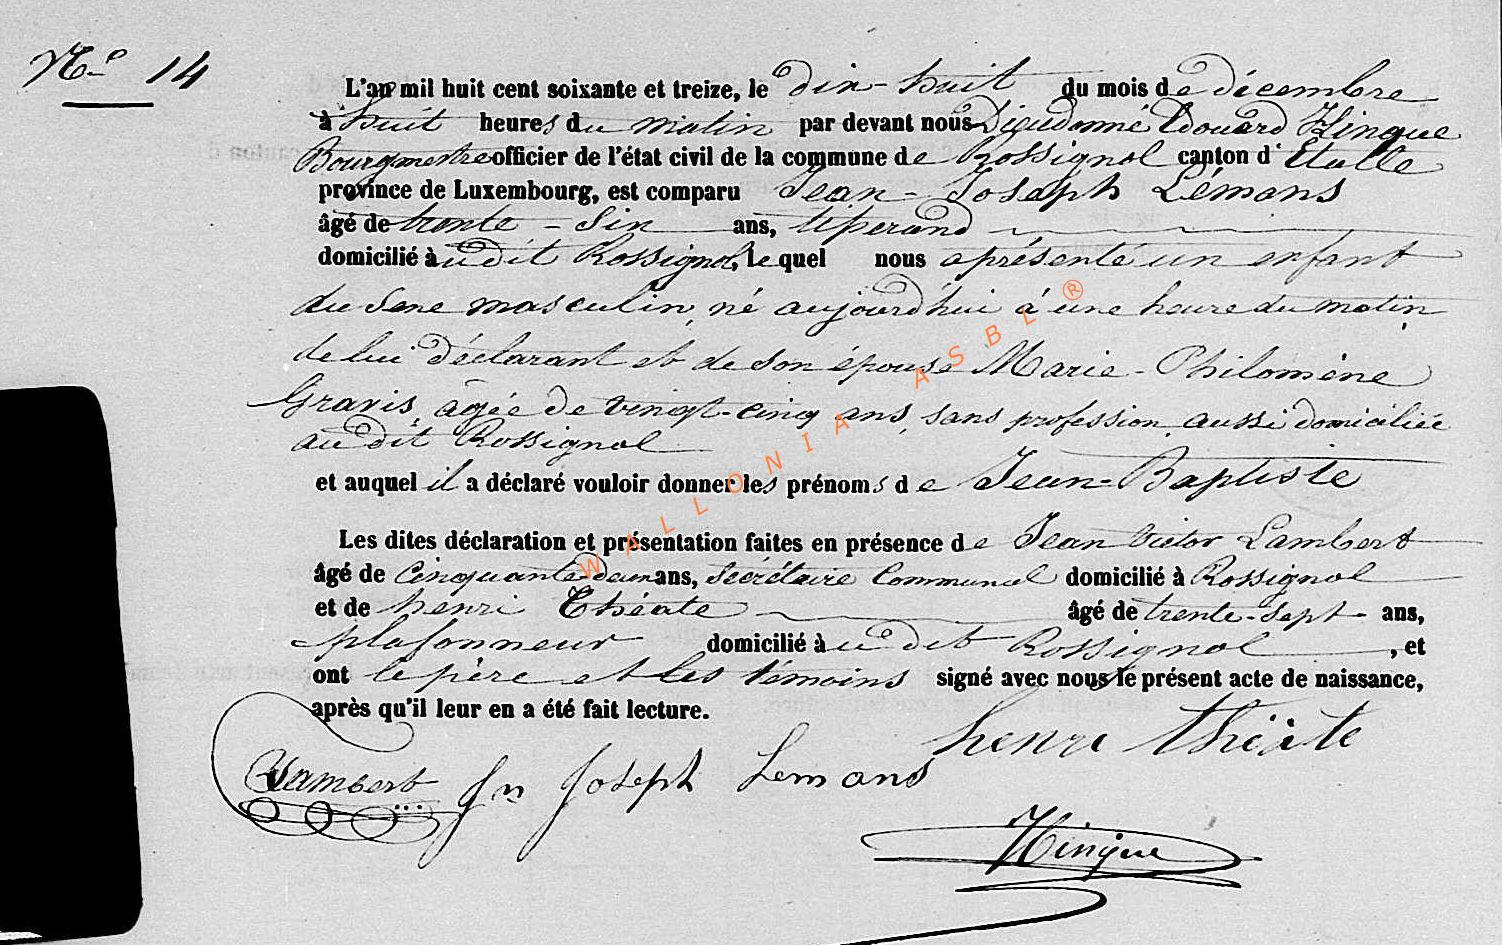 N.º 14
L'an mil huit cent soixante et treize, le dix-huit du mois de décembre
à huit heures du matin par devant nous Dieudonné Edouard Hinque
Bourgmestre officier de l'état civil de la commune de Rossignol canton d'Etalle
province de Luxembourg, est comparu Jean-Joseph Lémans
âgé de trente-six ans, tisserand
domicilié audit Rossignol, lequel nous a présenté un enfant
du sexe masculin, né aujourd'hui à une heure du matin,
de lui déclarant et de son épouse Marie-Philomène
Gravis, âgée de vingt-cinq ans, sans profession, aussi domiciliée
audit Rossignol
et auquel il a déclaré vouloir donner les prénoms de Jean-Baptiste
Les dites déclaration et présentation faites en présence de Jean Victor Lambert
âgé de cinquante-deux ans, Secrétaire Communal domicilié à Rossignol
et de henri Théate âgé de trente-sept ans,
plafonneur domicilié audit Rossignol, et
ont le père et les témoins signé avec nous le présent acte de naissance,
après qu'il leur en a été fait lecture.
henri théate
Lambert Jn Joseph Lemans
Hinque
WALLONIA ASBL ®